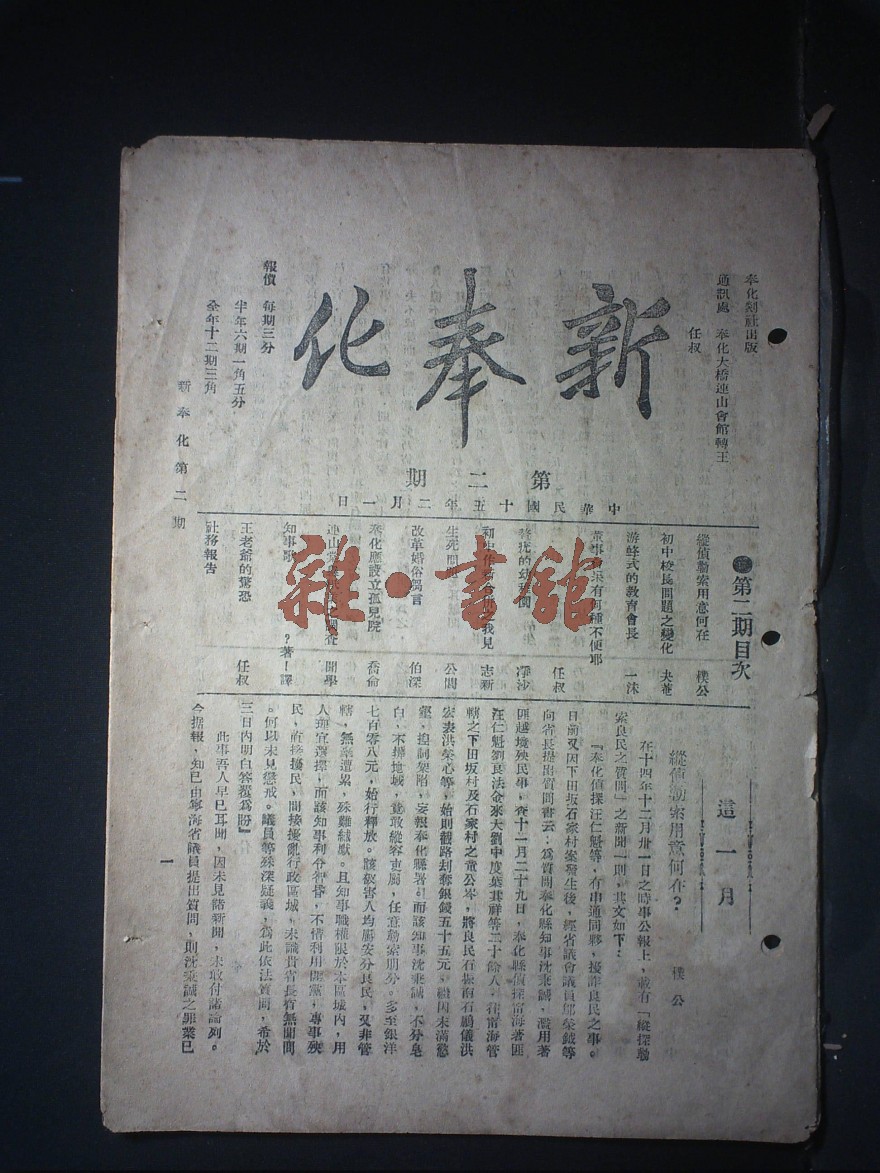 奉化剡社出版
通訊處 奉化大橋連山會館轉王
任叔
新奉化
報價 每期三分
半年六期一角五分
全年十二期三角
第二期
中華民國十五年二月一日
新奉化第二期
第二期目次
縱偵勒索用意何在 樸公
初中校長問題之變化 夫菴
游蜂式的教育會長 一沫
董事 有何種不便耶 任叔
的幼稚園 淨沙
我見 志新
生死問題 公閒
改革婚俗芻言 伯深
奉化應設立孤兒院 喬侖
連山 調查 開學
知事歌 ?著!譯
王老爺的驚恐 任叔
社務報告
雜·書館
這一月
縱偵勒索用意何在? 樸公
在十四年十二月卅一日之時事公報上,載有「縱探勒
索良民之質問」之新聞一則,其文如下:
『奉化偵探汪仁魁等,有串通同夥,擾詐良民之事。
日前又因下田坂石家村案發生後,經省議會議員鄔榮鉞等
向省長提出質問書云:為質問奉化縣知事沈秉誠,濫用著
匪越境殃民事,查十二月二十九日,奉化縣偵探甯海著匪
汪仁魁劉良法金來大劉中度葉其祥等二十餘人,往甯海管
轄之下田坂村及石家村之董公岑,將良民石振南石鵬儀洪
宏表洪榮心等,始則截路刦奪銀錢五十五元,繼因未滿慾
壑,揑詞架陷,妄報奉化縣署。而該知事沈秉誠,不分皂
白,不擇地域,竟敢縱容吏屬,任意勒索朋分。多至銀洋
七百零八元,始行釋放。該被害人均屬安分良民,又非管
轄,無辜遭累,殊難緘默。且知事職權限於本區域內,用
人理宜選擇,而該知事利令智昏,不惜利用開黨,專事殃
民,直接擾民,間接擾亂行政區域,未識貴省長有無聞問
。何以未見懲戒。議員等殊深疑義,為此依法質問,希於
三日內明白答覆為盼』
此事吾人早已耳聞,因未見諸新聞,未敢付諸論列。
今據報,知已由寧海省議員提出質問,則沈秉誠之罪業已
一